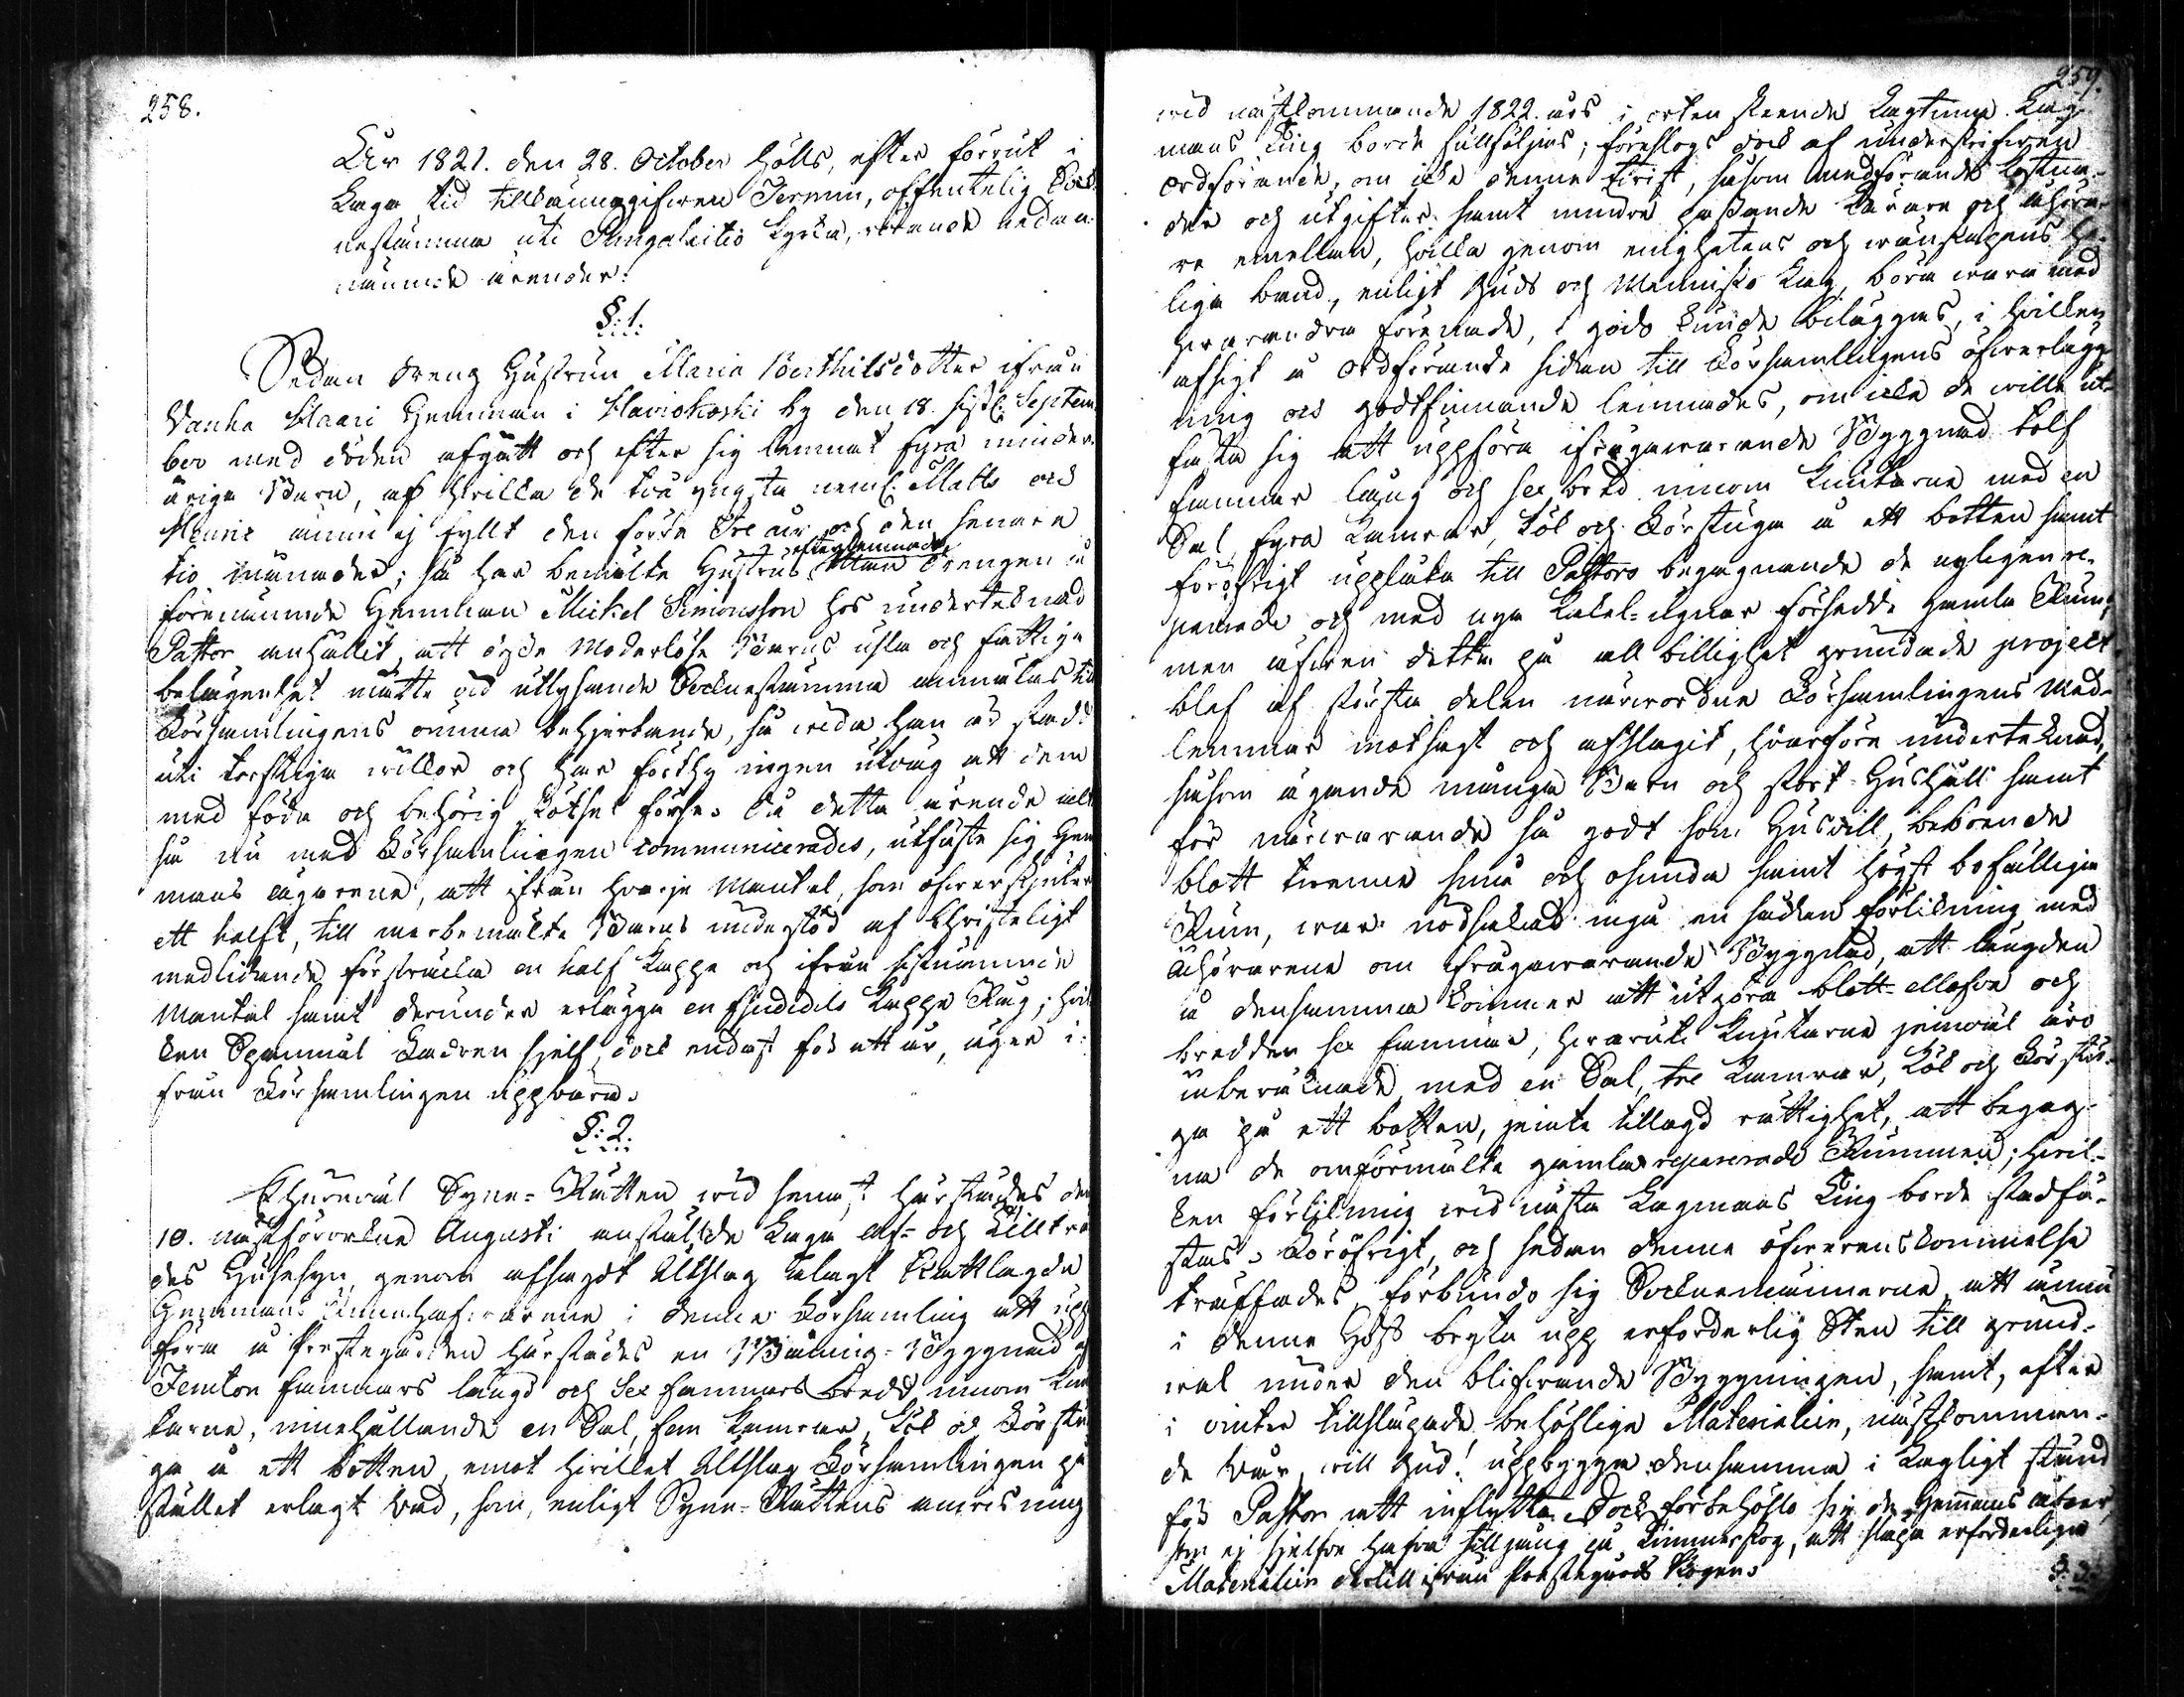 258.
År 1821. den 28. October hölls, efter förrut i
Laga tid tillkännagifwen Termin, offentelig Sock-
nestämma uti Pungalaitio kyrka, rörande nedan-
nämnde ärender:
§: 1.
Sedan Dreng Hustrun Maria Berthilsdotter ifrån
Vanha Klaari Hemman i Haviokoski by den 18. sistl. Septem-
ber med döden afgått och efter sig lemnat fyra minder-
årige Barn, af hwilka de två yngsta neml. Matts och
Henric ännu ej fyllt den förre Tre år och den senare
tio månader; så har bemälte Hustrus efterlemnade Man Drengen å
förenämnde Hemman Mickel Simonsson hos undertecknad
Pastor anhållit, att desze Moderlöse Barns usla och fattiga
belägenhet måtte vid utlysande Socknestämma anmälas till
Församlingens ömma behjertande, så wida han är stadd
uti torftiga willkor och har förthy ingen utväg att dem
med föda och behörig skötsel förse. Då detta ärende allt-
så nu med Församlingen communicerades, utfäste sig Hem-
mans ägarene, att ifrån hvarje Mantal, som öfverskjuter
ett halft, till merbemälte Barns understöd af Christeligt
medlidande förstrecka en half kappe och ifrån sistnämnde
Mantal samt derunder erlägga en fjerdedels kappe Råg; hvil-
ken Spannmål Fadren sjelf, dock endast för ett år, äger i-
från Församlingen uppbära.
§: 2.
Ehuruväl Syne-Rätten wid senast härstädes den
10. nästförvekne Augusti anstälde Laga af- och tillträ-
des Husesyn, genom afsagdt Utslag ålagt Skattlagde
Hemmans Innehafwarene i denna Församling att upp-
föra å Prestegården härstädes en Manings-Byggnad af
Femton famnars längd och Sex famnars bredd innom knu-
tarne, innehållande en Sal, fem kamrar, kök och Förstu-
ga å ett botten, emot hwilket Utslag Församlingen på
stället erlagt Vad, som, enligt Syne-Rättens anvisning
259.
wid nästkommande 1822. års i orten skeende Lagtima Lag-
mans Ting borde fullföljas; föreslogs dock af underskrifwen
Ordförande, om icke denna twist, såsom medförande kostna-
der och utgifter samt mindre passande Lärare och åhöra-
re emellan, hwilka genom enighetens och wänskapens he-
liga band, enligt Guds och Menniska Lag, böra wara med
hwarandra förenade, i godo kunde biläggas, i hwilken
afsigt å Ordförande sidan till Församlingens öfwerlägg-
ning och godtfinnande lemnades, om icke de wille ut-
fästa sig att uppföra ifrågawarande Byggnad tolf
famnar lång och sex bred innom knutarne med en
Sal, fyra kamrar, kök och Förstuga å ett botten samt
föröfrigt upplåta till Pastors begagnande de nyligen re-
parerade och med nya kakel-ugnar försedde gamla Rum;
men äfwen detta på all billighet grundade project
blef af största delen närwordne Församlingens Med-
lemmar motsagt och afslagit, hvarföre undertecknad,
såsom ägande många Barn och stort Hushåll samt
för närwarande så godt som Husvill, beboende
blott twenne små och osunda samt högst bofällige
Rum, war nödsakad ingå en sådan förlikning med
Åhörarene om ifrågawarande Byggnad, att längden
å densamma kommer att utgöra blott ellofva och
bredden sex famnar, hwaruti knutarne jemväl äro
inberäknade, med en Sal, tre kamrar, kök och Förstu-
ga på ett botten, jemte tillagd rättighet, att begag-
na de omförmälte gamla reparerade Rummen; hwil-
ken förlikning wid nästa Lagmans Ting borde stadfä-
stas. Föröfrigt, och sedan denna öfwerenskommelse
träffades, förbundo sig Socknemännerne att ännu
i denna Höst bryta upp erforderlig Sten till grund-
wal under den blifwande Byggningen, samt, efter
i vinter tillsläpade behöflige Materialier, nästkomman-
de Vår, will Gud! uppbygga densamma i Lagligt stånd
för Pastor att inflytta. Dock förbehöllo sig de Hemmans åboer,
som ej sjelfve hafva tillgång på Timmerskog, att släpa erforderliga
Materialier dertill ifrån Prestegårds Skogen.
§: 3.